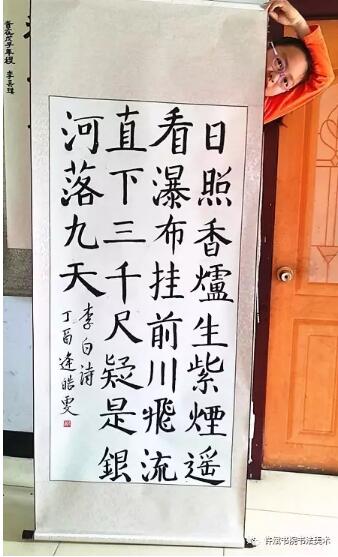 日照香爐生紫煙遥
看瀑布挂前川飛流
直下三千尺疑是銀
河落九天
李白诗
丁酉逢皓雯
书院书法美术